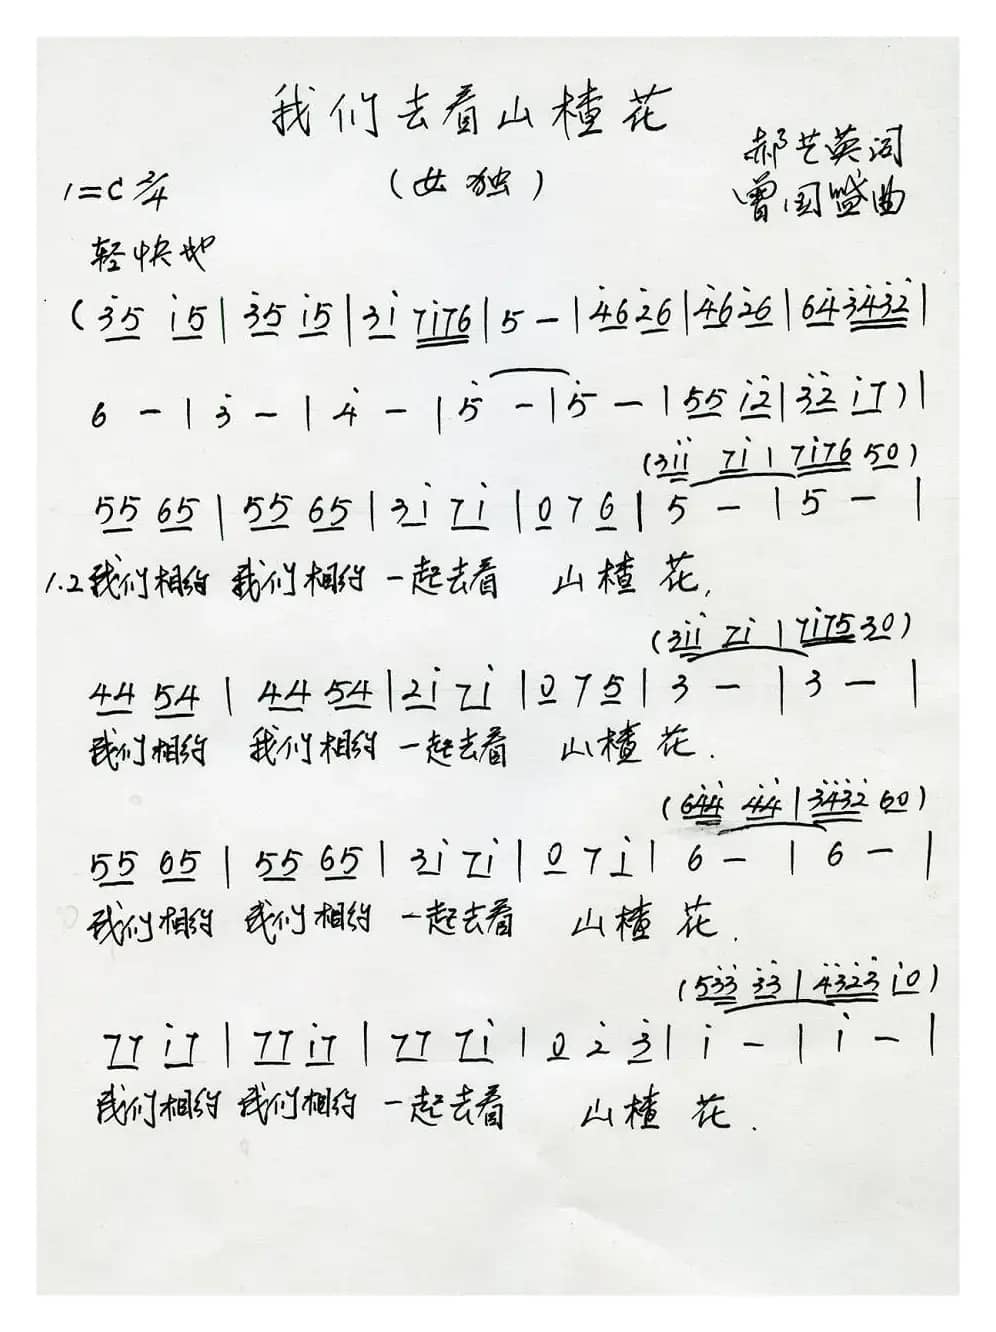 我们去看山楂花
(女独)
郝艺英词
曾国盛曲
1=C 2/4
轻快地
(3̇5 i5 | 3̇5 i5 | 3i 7i76 | 5 – | 4̇62̇6 | 4̇62̇6 | 64̇3̇4̇3̇2̇ |
6 – | 3̇ – | 4̇ – | 5̇ – | 5̇ – | 55 i2̇ | 3̇2̇ i7) |
(3ii 7i | 7i76 50)
55 65 | 55 65 | 3i 7i | 0 7 6 | 5 – | 5 – |
1.2 我们相约 我们相约 一起去看 山楂花,
(3ii 7i | 7i75 30)
44 54 | 44 54 | 2i 7i | 0 7 5 | 3 – | 3 – |
我们相约 我们相约 一起去看 山楂花.
(64̇4̇ 4̇4̇ | 3̇4̇3̇2̇ 60)
55 65 | 55 65 | 3i 7i | 0 7 i | 6 – | 6 – |
我们相约 我们相约 一起去看 山楂花.
(53̇3̇ 3̇3̇ | 4̇3̇2̇3̇ i0)
77 i7 | 77 i7 | 77 7i | 0 2̇ 3̇ | i – | i – |
我们相约 我们相约 一起去看 山楂花.